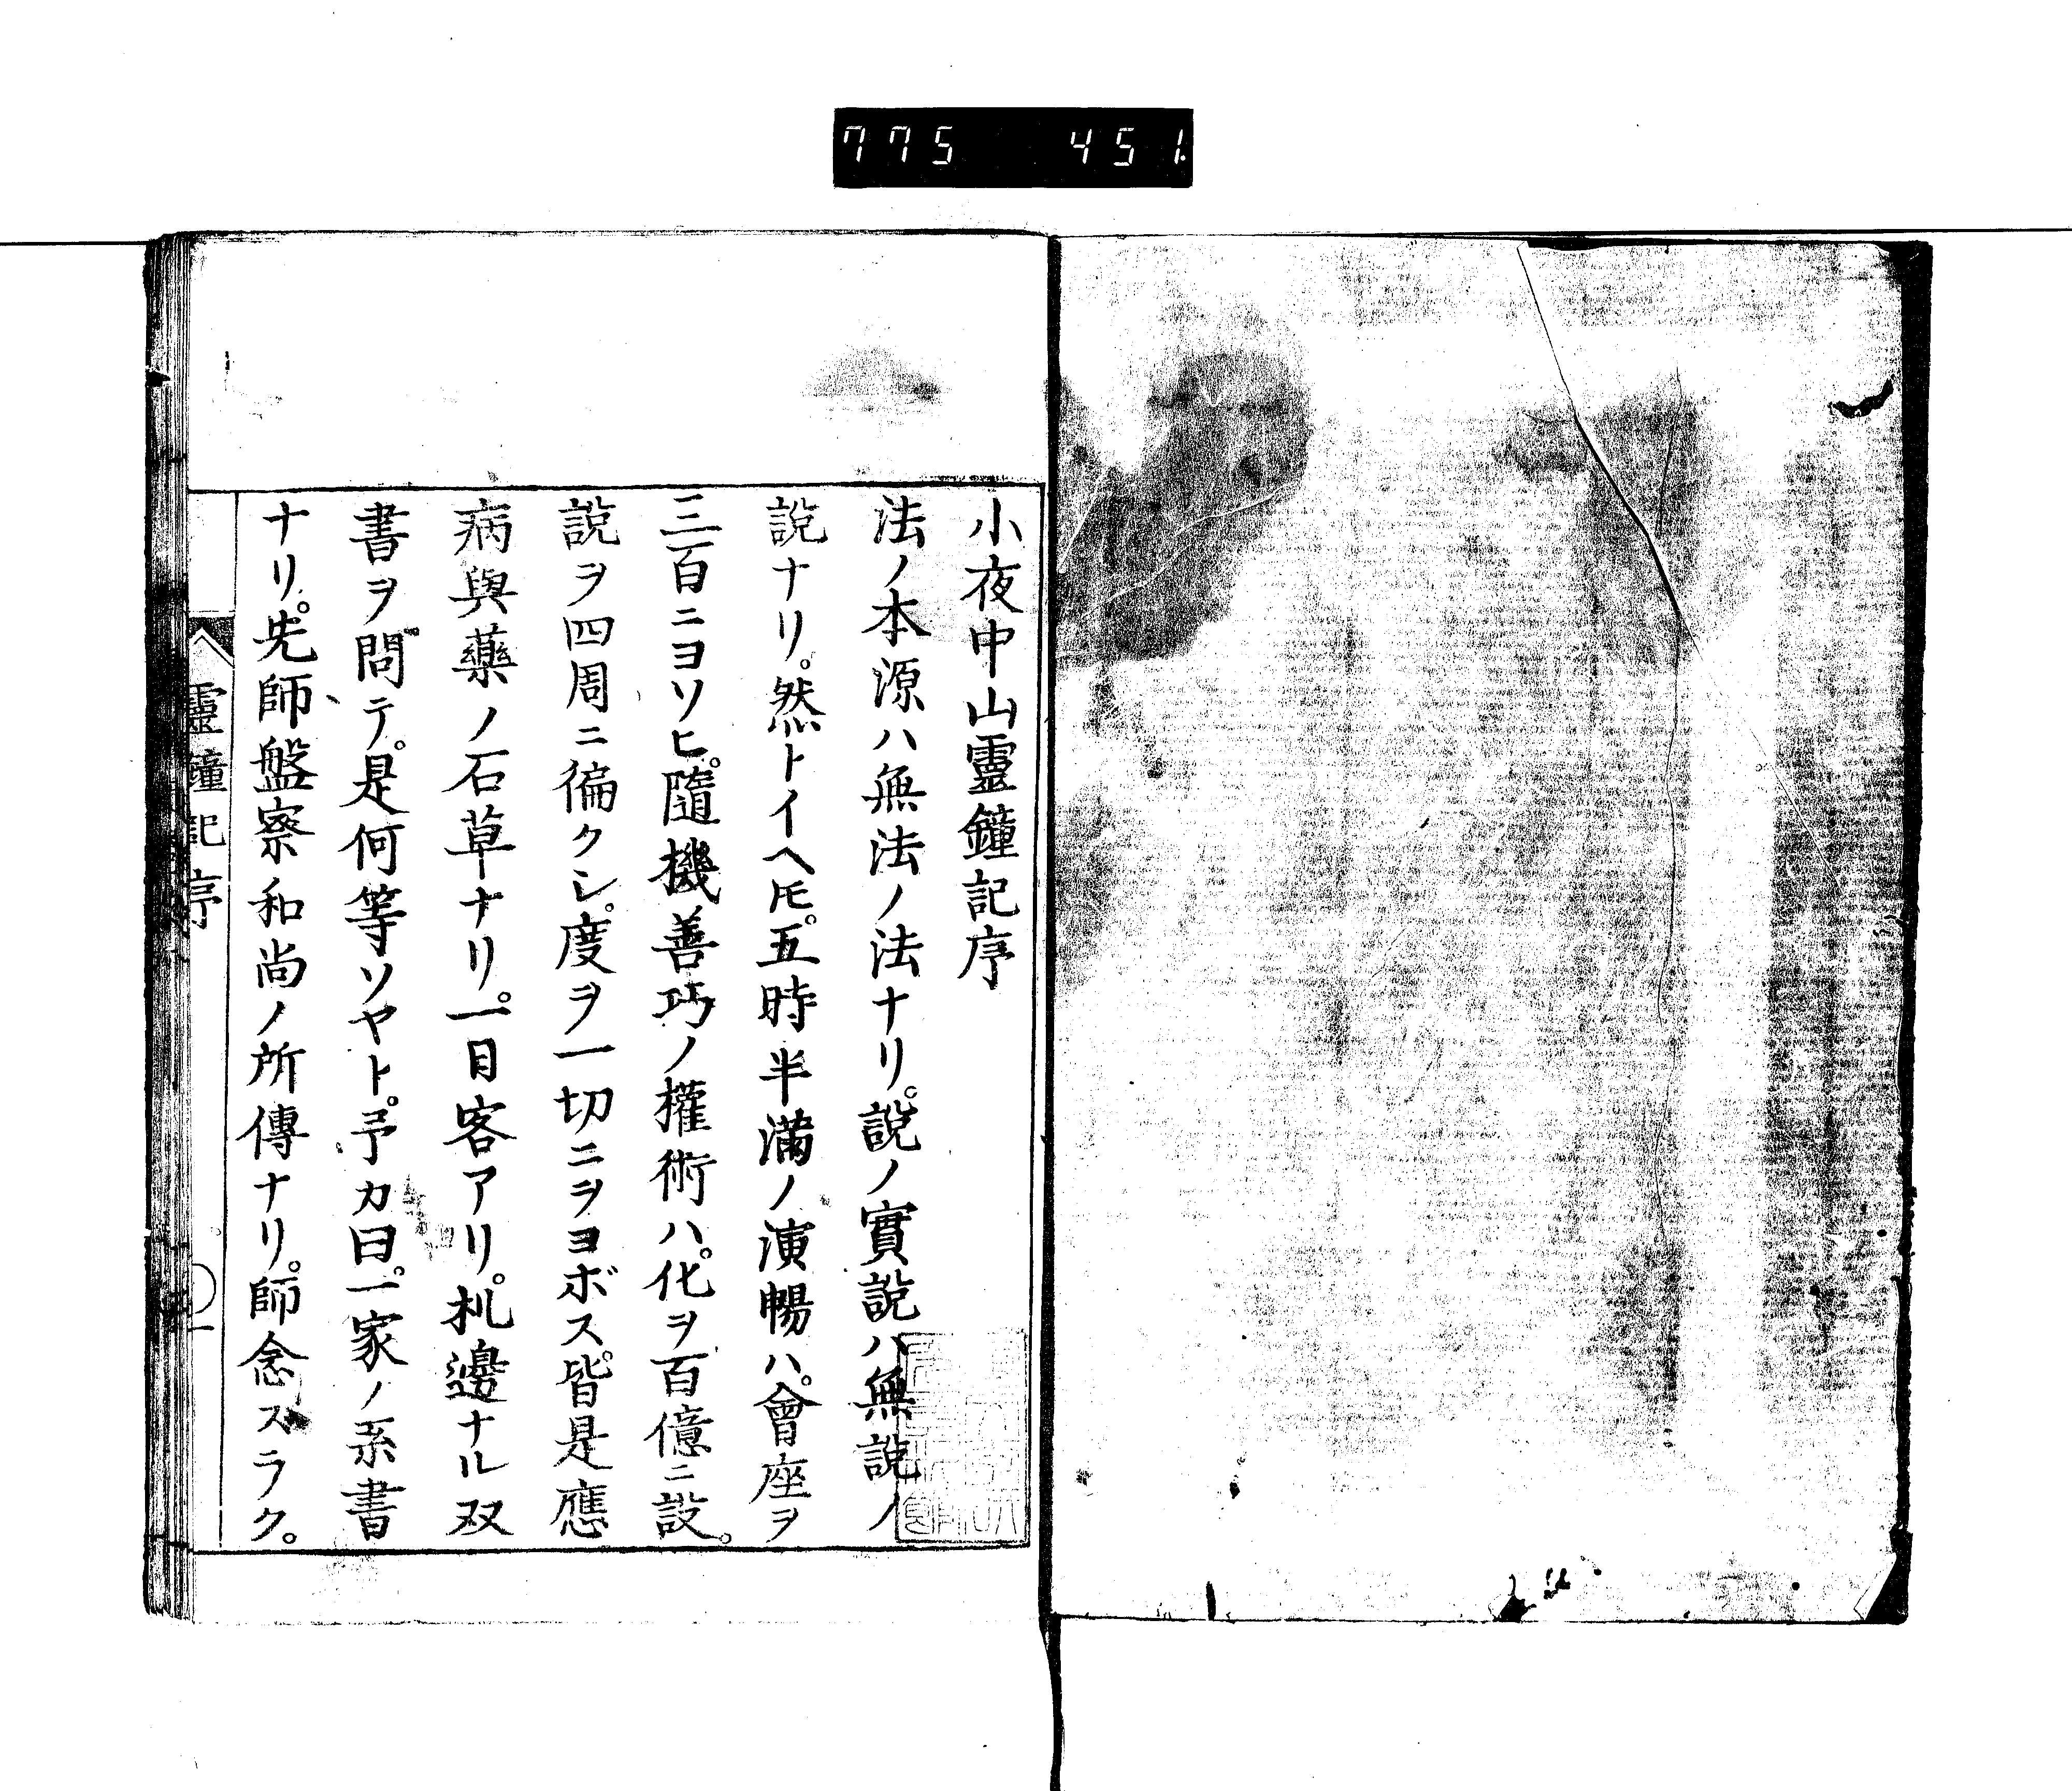 775 451
小夜中山靈鐘記序
法ノ本源ハ無法ノ法ナリ。說ノ實說ハ無說ノ
說ナリ。然トイヘ𪜈。五時半滿ノ演暢ハ。會座ヲ
三百ニヨソヒ。隨機善巧ノ權術ハ。化ヲ百億ニ設。
說ヲ四周ニ徧クシ。度ヲ一切ニヲヨボス。皆是應
病與藥ノ石草ナリ。一日客アリ。札邊ナル双
書ヲ問テ。是何等ソヤト。予カ曰。一家ノ系書
ナリ。先師盤察和尚ノ所傳ナリ。師念スラク。
靈鐘記序
一